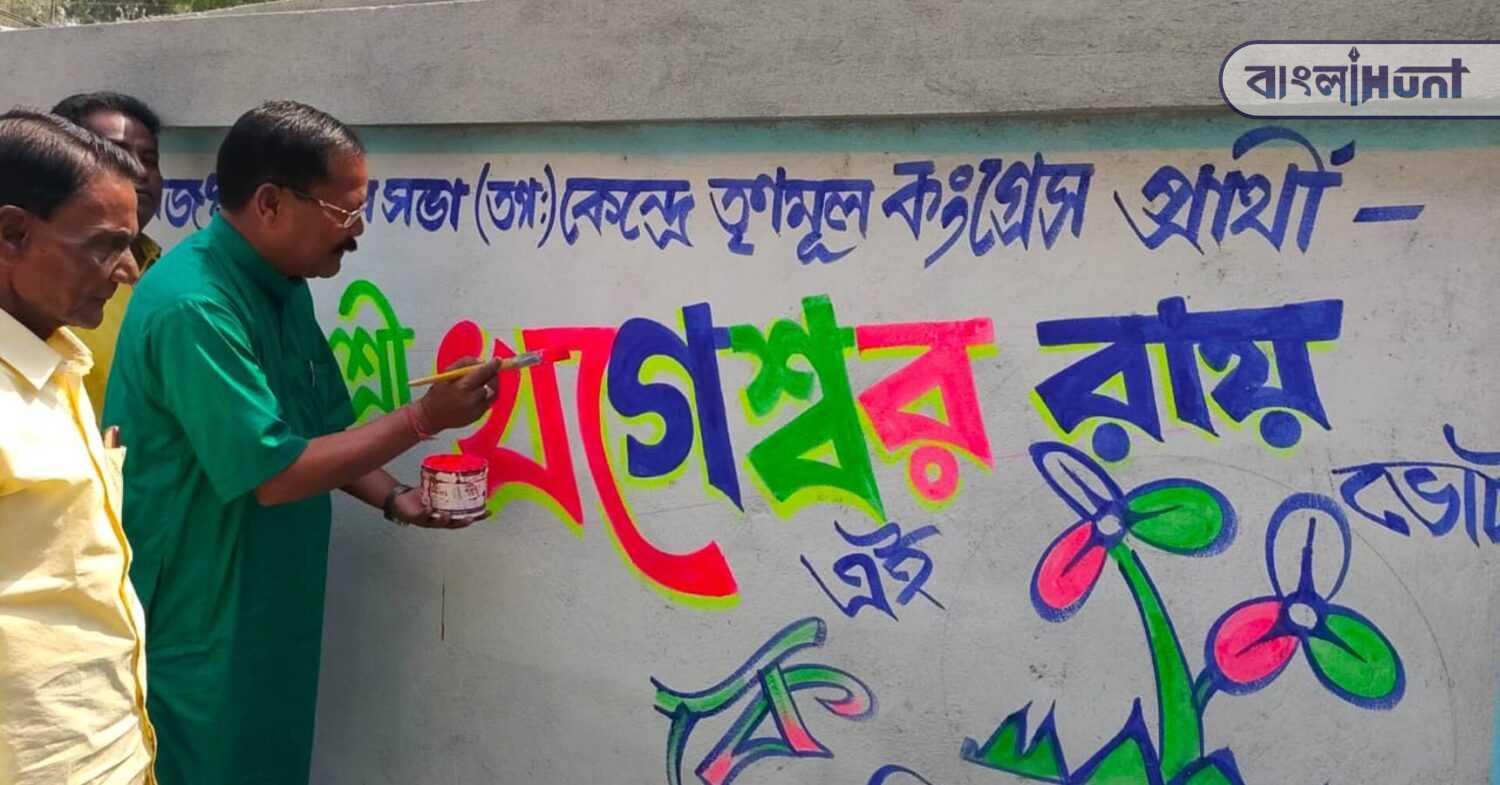 বাংলাHunt
সভা (তপঃ) কেন্দ্রে তৃণমূল কংগ্রেস প্রার্থী -
শ্রী খগেশ্বর রায়
এই
ভোট